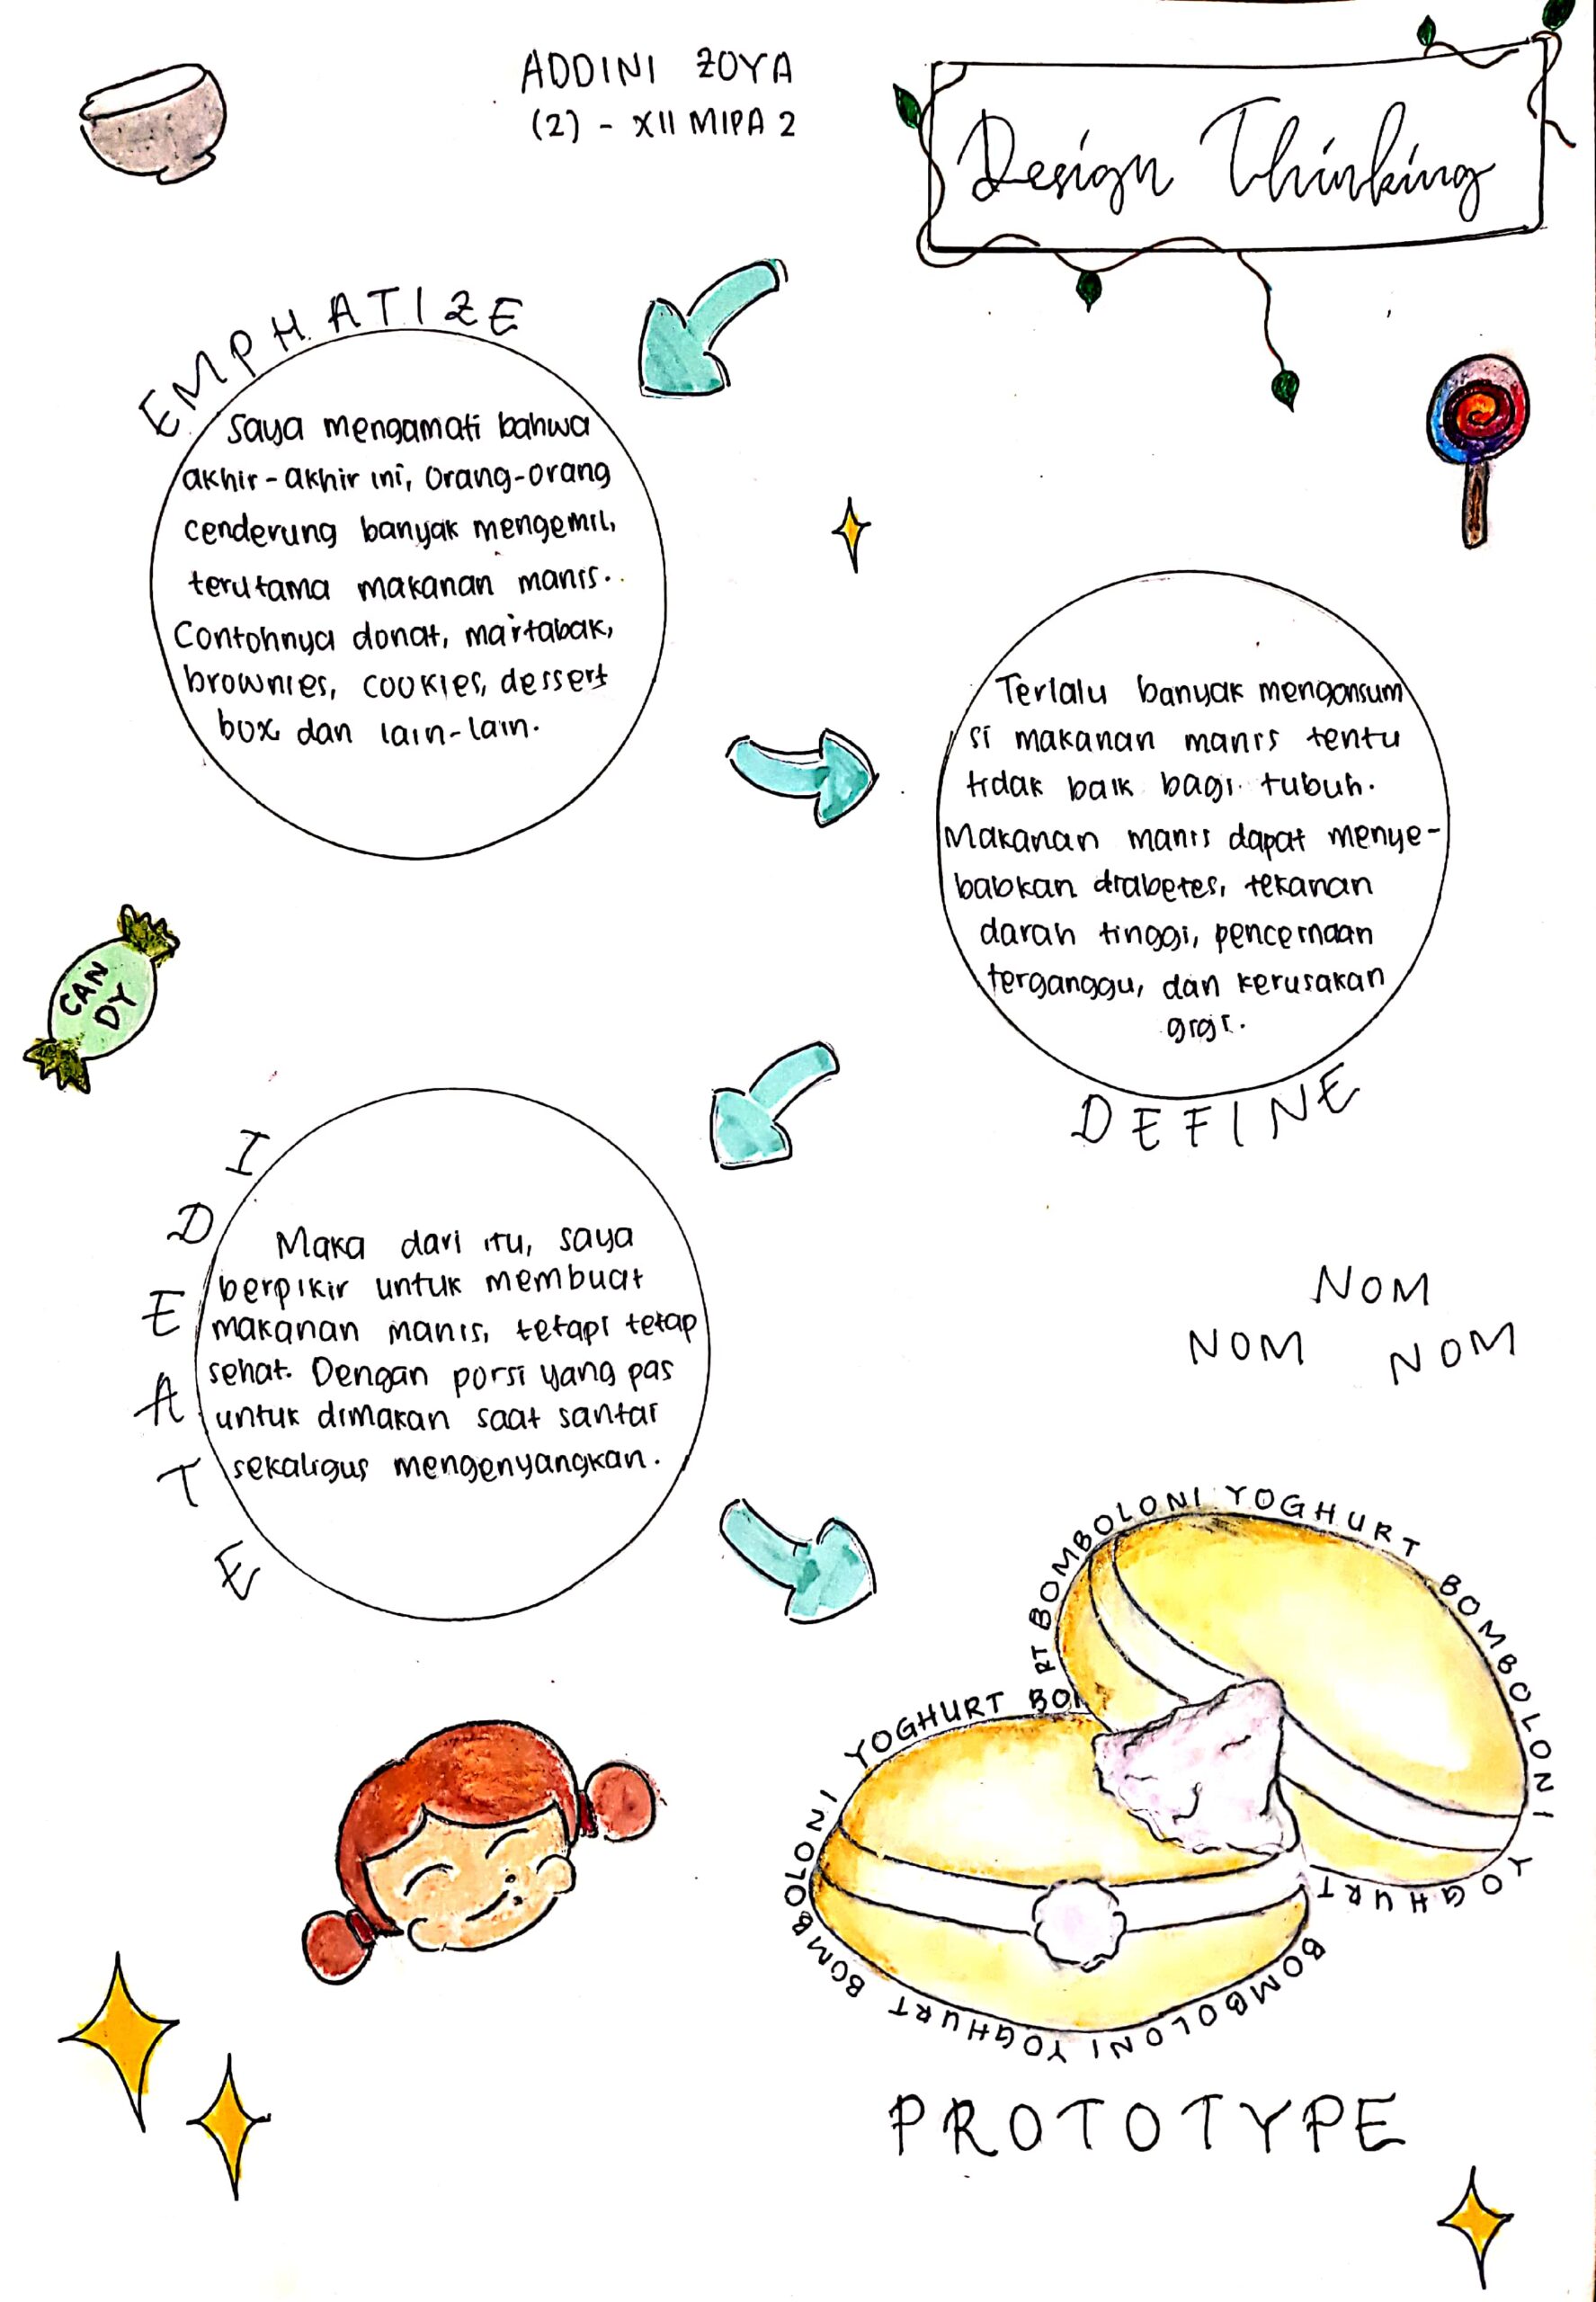 ADDINI ZOYA
(2) - XII MIPA 2
Design Thinking
EMPHATIZE
Saya mengamati bahwa
akhir-akhir ini, orang-orang
cenderung banyak mengemil,
terutama makanan manis.
Contohnya donat, martabak,
brownies, cookies, dessert
box dan lain-lain.
Terlalu banyak mengonsum
si makanan manis tentu
tidak baik bagi tubuh.
Makanan manis dapat menye-
babkan diabetes, tekanan
darah tinggi, pencernaan
terganggu, dan kerusakan
gigi.
DEFINE
CAN
DY
IDEATE
Maka dari itu, saya
berpikir untuk membuat
makanan manis, tetapi tetap
sehat. Dengan porsi yang pas
untuk dimakan saat santai
sekaligus mengenyangkan.
NOM
NOM NOM
RT BOMBOLONI YOGHURT BOMBOLONI YOGHURT
BOMBOLONI YOGHURT BOMBOLONI YOGHURT BOM
PROTOTYPE